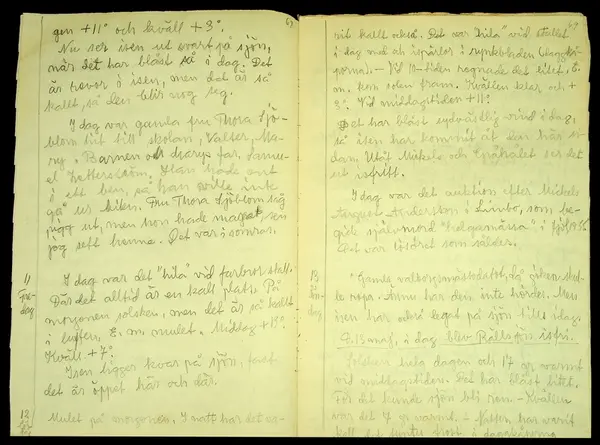 63
gen +11° och kväll +3°.
Nu ser isen ut svart på sjön,
när det har blåst så i dag. Det
är revor i isen, men det är så
kallt, så den blir nog seg.
I dag var gamla fru Thora Sjö-
blom hit till skolan, Valter, Ma-
ry. Barnen och Marys far, Samu-
el Zetterström. Han hade ont
i ett ben, så han ville inte
gå ur bilen. Fru Thora Sjöblom såg
ut, men hon hade magrat, sen
jag sett henne. Det var i somras.
11
Tis-
dag
I dag var det "hila" vid farbror stall.
Där det alltid är en kall plats. På
morgonen solsken, men det är så kallt
i luften. E.m. mulet. Middag +11°.
Kväll +7°.
Isen ligger kvar på sjön, fast
det är öppet här och där.
12
Mulet på morgonen. I natt har det va-
64
rit kallt också. Det var "hila" vid stallet
i dag med
. – Vid 10-tiden regnade det litet, E.
m. kom solen fram. Kvällen klar och +
3°. Vid middagstiden +11°.
Det har blåst sydvästlig vind i dag,
så isen har kommit åt den här si-
dan. Utåt Mickels och ser det
ut isfritt.
I dag var det auktion efter Mickels
August Andersson i Limbo, som be-
gick självmord "helgamässa" i fjol 1936.
Det var lösöret som såldes.
13
dag
Gamla valborgsmässodagen, då göken skul-
le ropa. Ännu har den inte hörts. Men
isen har också legat på sjön tills idag.
D. 13 maj, i dag blev Rällsjön isfri.
Solsken hela dagen och 17 gr. varmt
vid middagstiden. Det har blåst litet.
För det kunde sjön bli ren. – Kvällen
var det 7 gr. varmt. – Natten har varit
kall